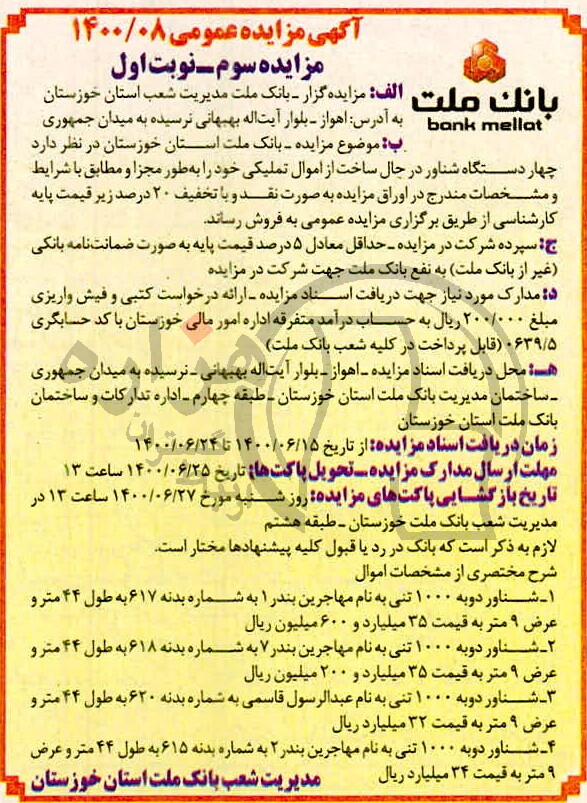 آگهی مزایده عمومی ۱۴۰۰/۰۸
مزایده سوم ـ نوبت اول
بانک ملت
bank mellat
الف: مزایده‌گزار ـ بانک ملت مدیریت شعب استان خوزستان
به آدرس: اهواز ـ بلوار آیت‌اله بهبهانی نرسیده به میدان جمهوری
ب: موضوع مزایده ـ بانک ملت استان خوزستان در نظر دارد
چهار دستگاه شناور در حال ساخت از اموال تملیکی خود را به‌طور مجزا و مطابق با شرایط
و مشخصات مندرج در اوراق مزایده به صورت نقد و با تخفیف ۲۰ درصد زیر قیمت پایه
کارشناسی از طریق برگزاری مزایده عمومی به فروش رساند.
ج: سپرده شرکت در مزایده ـ حداقل معادل ۵ درصد قیمت پایه به صورت ضمانت‌نامه بانکی
(غیر از بانک ملت) به نفع بانک ملت جهت شرکت در مزایده
د: مدارک مورد نیاز جهت دریافت اسناد مزایده ـ ارائه درخواست کتبی و فیش واریزی
مبلغ ۲۰۰/۰۰۰ ریال به حساب درآمد متفرقه اداره امور مالی خوزستان با کد حسابگری
۰۶۳۹/۵ (قابل پرداخت در کلیه شعب بانک ملت)
هـ: محل دریافت اسناد مزایده ـ اهواز ـ بلوار آیت‌اله بهبهانی ـ نرسیده به میدان جمهوری
ـ ساختمان مدیریت بانک ملت استان خوزستان ـ طبقه چهارم ـ اداره تدارکات و ساختمان
بانک ملت استان خوزستان
زمان دریافت اسناد مزایده: از تاریخ ۱۴۰۰/۰۶/۱۵ تا ۱۴۰۰/۰۶/۲۴
مهلت ارسال مدارک مزایده ـ تحویل پاکت‌ها: تاریخ ۱۴۰۰/۰۶/۲۵ ساعت ۱۳
تاریخ بازگشایی پاکت‌های مزایده: روز شنبه مورخ ۱۴۰۰/۰۶/۲۷ ساعت ۱۳ در
مدیریت شعب بانک ملت خوزستان ـ طبقه هشتم
لازم به ذکر است که بانک در رد یا قبول کلیه پیشنهادها مختار است.
شرح مختصری از مشخصات اموال
۱ـ شناور دوبه ۱۰۰۰ تنی به نام مهاجرین بندر ۱ به شماره بدنه ۶۱۷ به طول ۴۴ متر و
عرض ۹ متر به قیمت ۳۵ میلیارد و ۶۰۰ میلیون ریال
۲ـ شناور دوبه ۱۰۰۰ تنی به نام مهاجرین بندر ۷ به شماره بدنه ۶۱۸ به طول ۴۴ متر و
عرض ۹ متر به قیمت ۳۵ میلیارد و ۲۰۰ میلیون ریال
۳ـ شناور دوبه ۱۰۰۰ تنی به نام عبدالرسول قاسمی به شماره بدنه ۶۲۰ به طول ۴۴ متر و
عرض ۹ متر به قیمت ۳۲ میلیارد ریال
۴ـ شناور دوبه ۱۰۰۰ تنی به نام مهاجرین بندر ۲ به شماره بدنه ۶۱۵ به طول ۴۴ متر و عرض
۹ متر به قیمت ۳۴ میلیارد ریال
مدیریت شعب بانک ملت استان خوزستان